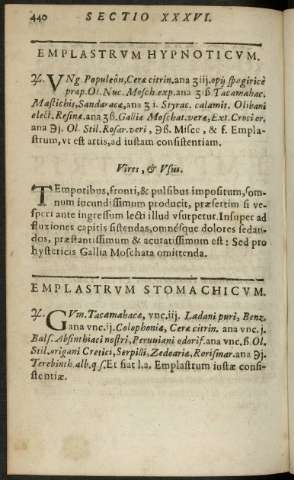 440 SECTIO XXXVI.
EMPLASTRVM HYPNOTICVM.
℞. VNg Populeõu, Ceræ citrin. ana ʒ iij. opij spagiricè
prap. Ol. Nuc. Mosch. exp. ana ʒ ß Tacamahac.
Mastichis, Sandaracæ, ana ʒ i. Styrac. calamit. Olibani
elect. Resinæ ana ʒ ß. Gallia Moschat. veræ, Ext. Croci er.
ana ℈j. Ol. Stil. Rosar. veri, ℈ß. Misce, & f. Empla-
strum, vt est artis, ad iustam consistentiam.
Vires, & Vsus.
TEmporibus, fronti, & pulsibus impositum, som-
num iucundissimum producit, præsertim si ve-
speri ante ingressum lecti illud vsurpetur. Insuper ad
fluxiones capitis sistendas, omnésque dolores sedan-
dos, præstantissimum & acutatissimum est: Sed pro
hystericis Gallia Moschata omittenda.
EMPLASTRVM STOMACHICVM.
℞. GVm. Tacamahacæ, vnc. iij. Ladani puri, Benz.
ana vnc. ij. Colophoniæ, Ceræ citrin. ana vnc. j.
Bals. Absinthiaci nostri, Peruuiani odorif. ana vnc. ß. Ol.
Stil. origani Cretici, Serpilli, Zedoariæ, Rorismar. ana ℈j.
Terebinth. alb. q. s. Et fiat l. a. Emplastrum iustæ consi-
stentiæ.